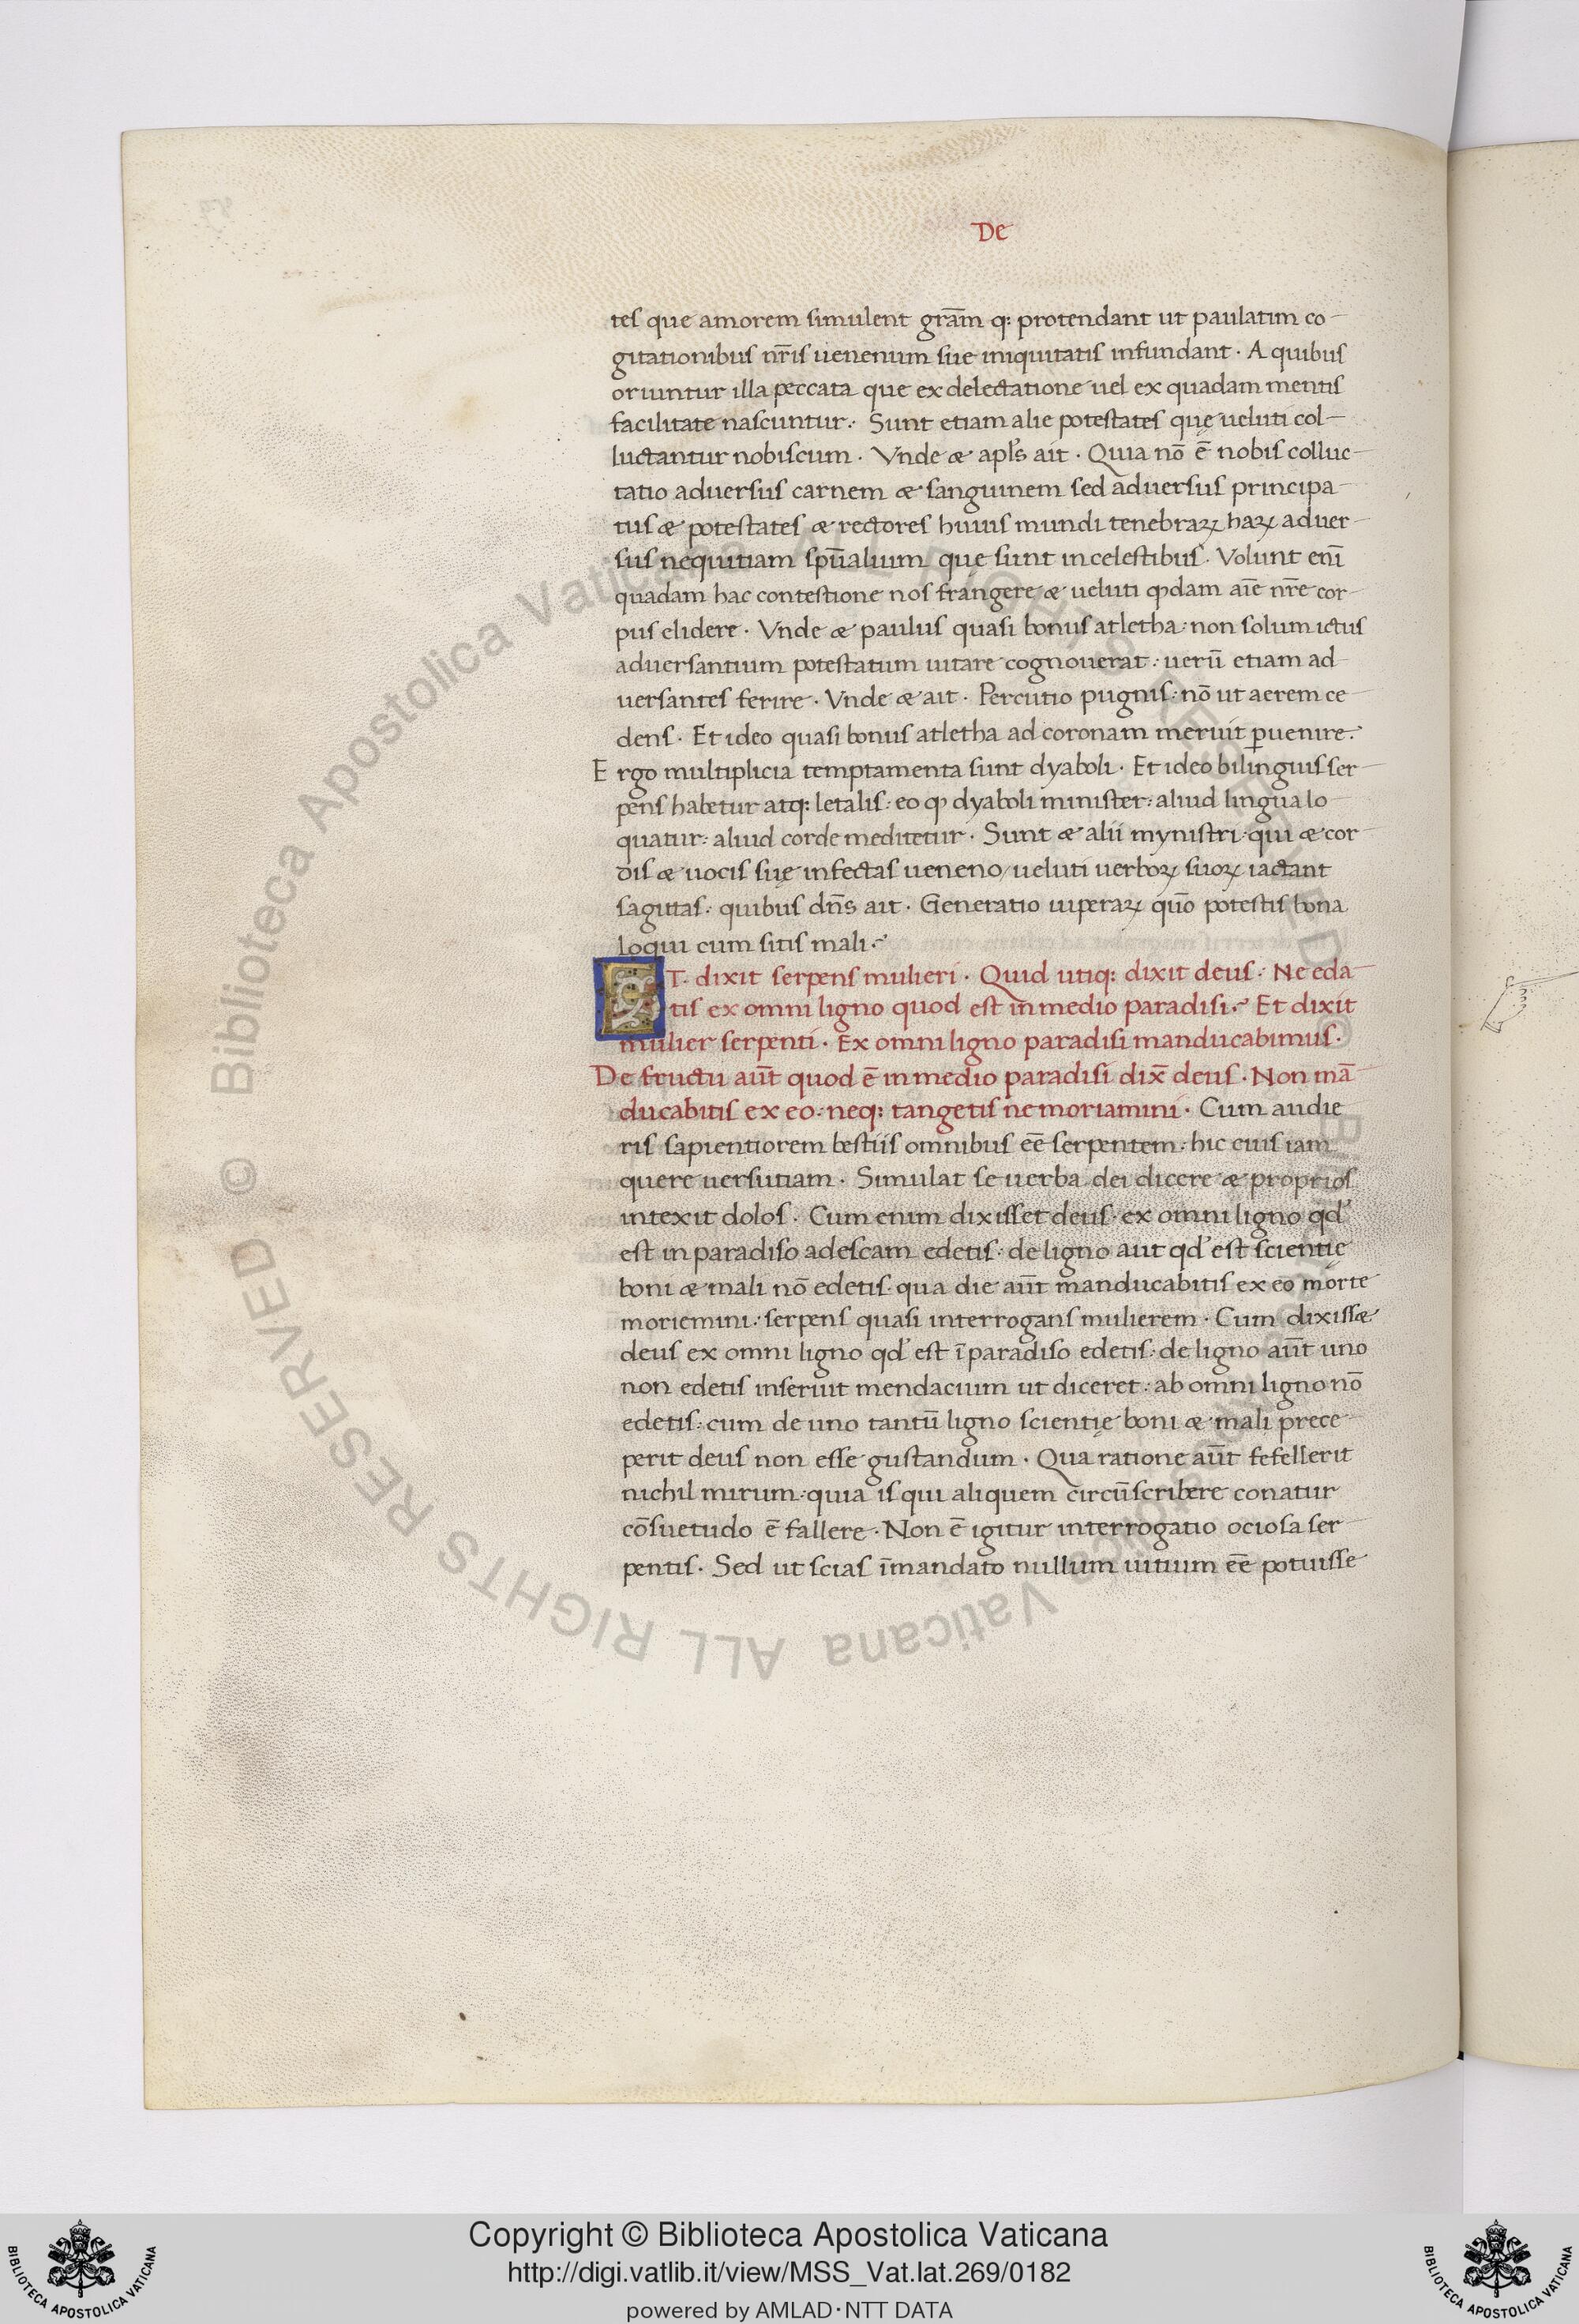 De
tes que amorem simulent grām q: protendant ut paulatim co-
gitationibus nr̄is uenenum sue iniquitatis infundant · A quibus
oriuntur illa peccata que ex delectatione uel ex quadam mentis
facilitate nascuntur. Sunt etiam alie potestates quę ueluti col-
luctantur nobiscum · Vnde & apl's ait · Quia nō ē nobis colluc-
tatio aduersus carnem & sanguinem sed aduersus principa-
tus & potestates & rectores huius mundi tenebraꝝ haꝝ aduer-
sus nequitiam spūalium que sunt in celestibus · Volunt enī
quadam hac contestione nos frangere & ueluti ꝙdam aīe nr̄e cor-
pus elidere · Vnde & paulus quasi bonus atletha: non solum ictus
aduersantium potestatum uitare cognouerat: uerū etiam ad-
uersantes ferire · Vnde & ait · Percutio pugnis: nō ut aerem ce-
dens · Et ideo quasi bonus atletha ad coronam meruit ꝑuenire.
Ergo multiplicia temptamenta sunt dyaboli · Et ideo bilinguis ser-
pens habetur atq: letalis: eo ꝙ dyaboli minister: aliud lingua lo-
quatur: aliud corde meditetur · Sunt & alii mynistri: qui & cor-
dis & uocis suę infectas ueneno/ ueluti uerboꝝ suoꝝ iactant
sagittas: quibus dn̄s ait · Generatio uiperaꝝ quō potestis bona
loqui cum sitis mali.
ET dixit serpens mulieri · Quid utiq: dixit deus: Ne eda-
tis ex omni ligno quod est in medio paradisi. Et dixit
mulier serpenti · Ex omni ligno paradisi manducabimus.
De fructu aūt quod ē in medio paradisi dix̄ deus · Non mā-
ducabitis ex eo: neq: tangetis ne moriamini · Cum audie-
ris sapientiorem bestiis omnibus eē serpentem: hic eius iam
quere uersutiam · Simulat se uerba dei dicere & proprios
intexit dolos · Cum enim dixisset deus: ex omni ligno qd'
est in paradiso ad escam edetis: de ligno aut qd' est scientię
boni & mali nō edetis qua die aūt manducabitis ex eo morte
moriemini: serpens quasi interrogans mulierem · Cum dixiss&
deus ex omni ligno qd' est ī paradiso edetis: de ligno aūt uno
non edetis inseruit mendacium ut diceret: ab omni ligno nō
edetis: cum de uno tantū ligno scientię boni & mali prece-
perit deus non esse gustandum · Qua ratione aūt fefellerit
nichil mirum: quia is qui aliquem circūscribere conatur
cōsuetudo ē fallere · Non ē igitur interrogatio ociosa ser-
pentis · Sed ut scias ī mandato nullum uitium eē potuisse
© Biblioteca Apostolica Vaticana ALL RIGHTS RESERVED © Biblioteca Apostolica Vaticana ALL RIGHTS RESERVED
Copyright © Biblioteca Apostolica Vaticana
http://digi.vatlib.it/view/MSS_Vat.lat.269/0182
powered by AMLAD·NTT DATA
BIBLIOTECA APOSTOLICA VATICANA
BIBLIOTECA APOSTOLICA VATICANA